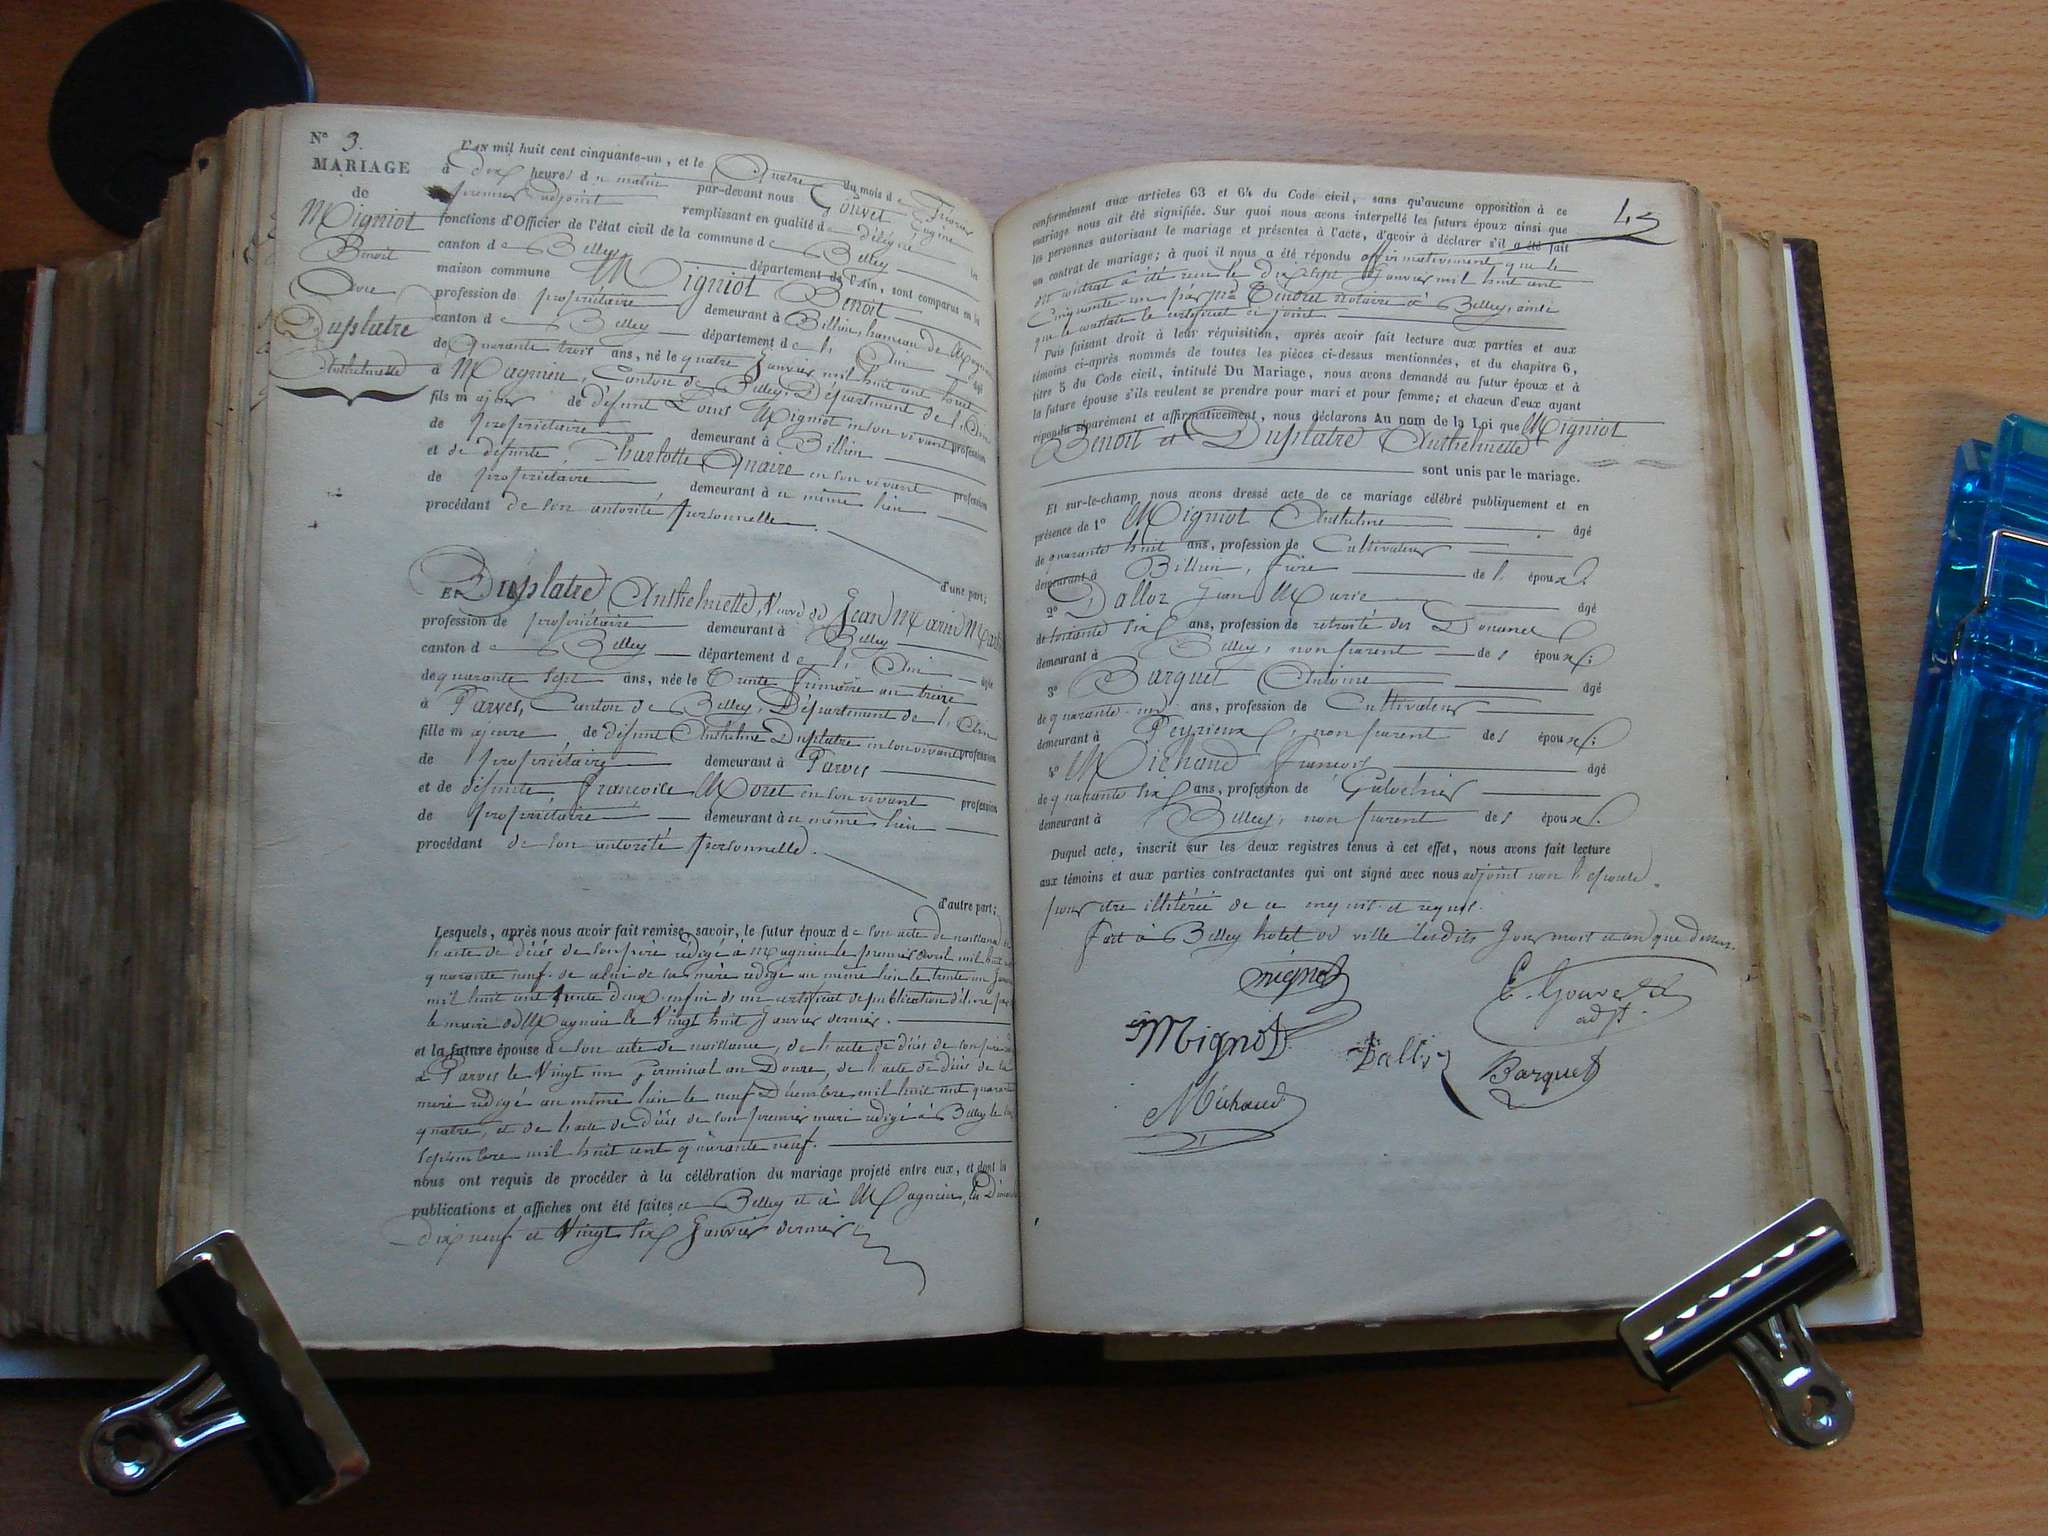 N° 3.
MARIAGE
de
Migniot
Benoit
Avec
Duplatre
Anthelmette
L'an mil huit cent cinquante-un, et le quatre du mois de Février
à dix heures du matin par-devant nous Gouvet Eugène
premier adjoint remplissant en qualité de délégué les
fonctions d'Officier de l'état civil de la commune de Belley
canton de Belley département de l'Ain, sont comparus en la
maison commune Migniot Benoit
profession de propriétaire demeurant à Billieu, hameau de Magnieu
canton de Belley département de l'Ain âgé
de quarante trois ans, né le quatre Janvier mil huit cent huit
à Magnieu, Canton de Belley, Département de l'Ain
fils majeur de défunt Louis Migniot en son vivant profession
de propriétaire demeurant à Billieu
et de défunte Charlotte en son vivant profession
de propriétaire demeurant à u même lieu
procédant de son autorité personnelle.
d'une part;
Et Duplatre Anthelmette, Veuve de Jean Marin
profession de propriétaire demeurant à Belley
canton de Belley département de l'Ain âgée
de quarante sept ans, née le trente frimaire an treize
à Parves, Canton de Belley, Département de l'Ain
fille majeure de défunt Anthelme Duplatre en son vivant profession
de propriétaire demeurant à Parves
et de défunte Françoise Moret en son vivant profession
de propriétaire demeurant à u même lieu
procédant de son autorité personnelle.
d'autre part;
Lesquels, après nous avoir fait remise, savoir, le futur époux de son acte de naissance de
l'acte de décès de son père rédigé à Magnieu le premier Avril mil huit cent
quarante neuf. de celui de sa mère rédigé au même lieu le trente un
mil huit cent trente deux enfin d'un certificat de publication délivré par
le maire de Magnieu le Vingt huit Janvier dernier.
et la future épouse de son acte de naissance, de l'acte de décès de son père
à Parves le Vingt un Germinal an Douze, de l'acte de décès de sa
mère rédigé au même lieu le neuf Décembre mil huit cent quarante
quatre, et de l'acte de décès de son premier mari rédigé à Belley le
septembre mil huit cent quarante neuf.
nous ont requis de procéder à la célébration du mariage projeté entre eux, et dont les
publications et affiches ont été faites à Belley et à Magnieu, les Dimanches
dix neuf et Vingt six Janvier dernier
45
conformément aux articles 63 et 64 du Code civil, sans qu'aucune opposition à ce
mariage nous ait été signifiée. Sur quoi nous avons interpellé les futurs époux ainsi que
les personnes autorisant le mariage et présentes à l'acte, d'avoir à déclarer s'il a été fait
un contrat de mariage; à quoi il nous a été répondu affirmativement que le
dit contrat a été reçu le dix sept Janvier mil huit cent
cinquante un par Me Tendret notaire à Belley, ainsi
que le constate le certificat ci joint
Puis faisant droit à leur réquisition, après avoir fait lecture aux parties et aux
témoins ci-après nommés de toutes les pièces ci-dessus mentionnées, et du chapitre 6,
titre 5 du Code civil, intitulé Du Mariage, nous avons demandé au futur époux et à
la future épouse s'ils veulent se prendre pour mari et pour femme; et chacun d'eux ayant
répondu séparément et affirmativement, nous déclarons Au nom de la Loi que Migniot
Benoit et Duplatre Anthelmette
sont unis par le mariage.
Et sur-le-champ nous avons dressé acte de ce mariage célébré publiquement et en
présence de 1° Migniot Anthelme âgé
de quarante huit ans, profession de Cultivateur
demeurant à Billieu, frère de l' époux;
2° Dalloz Jean Marie âgé
de soixante six ans, profession de retraité des Douanes
demeurant à Belley, non parent des époux;
3° Barquet Antoine âgé
de quarante un ans, profession de Cultivateur
demeurant à Peyrieux, non parent des époux;
4° Michaud François âgé
de quarante six ans, profession de
demeurant à Belley, non parent des époux.
Duquel acte, inscrit sur les deux registres tenus à cet effet, nous avons fait lecture
aux témoins et aux parties contractantes qui ont signé avec nous adjoint non l'épouse
pour être illitérée de ce enquise et requise.
Fait à Belley hôtel de ville lesdits jour mois et an que dessus.
Mignot
E. Gouvet
adjt.
Mignot
Dalloz
Barquet
Michaud